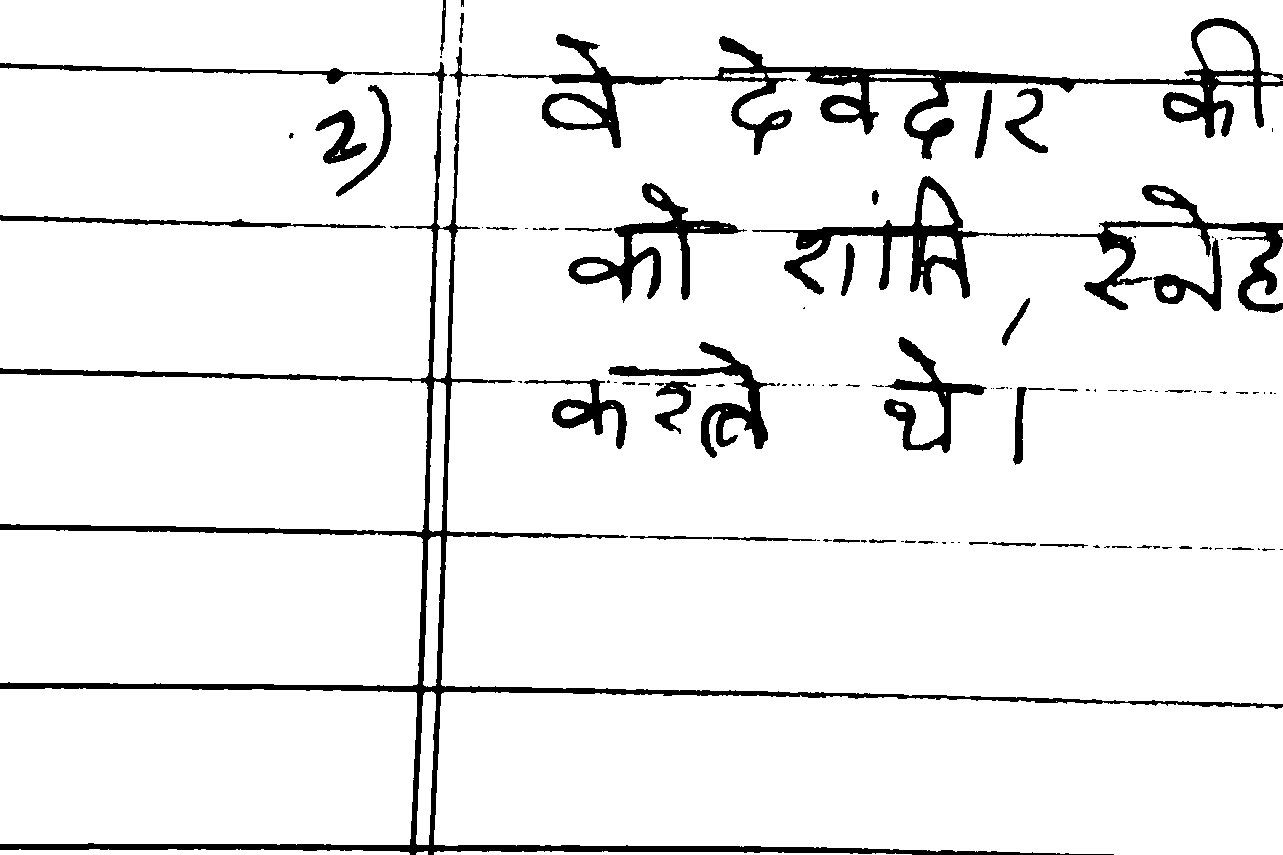 2) वे देवदार की
को शांति, स्नेह
करते थे।